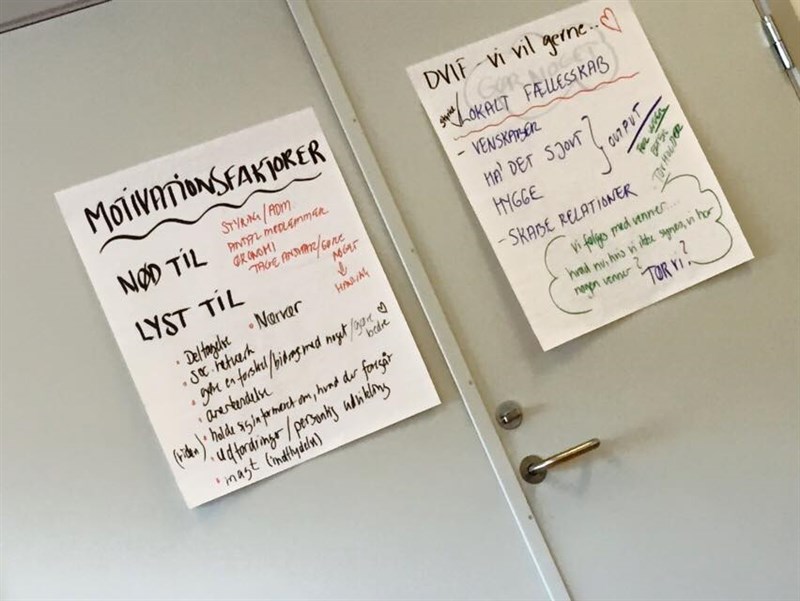 MOTIVATIONSFAKTORER
NØD TIL
STYRING/ADM
ANTAL MEDLEMMER
ØKONOMI
TAGE ANSVAR/GØRE
NOGET
↓
HANDLING
LYST TIL
• Deltagelse
• Nærvær
• Soc. netværk
• gøre en forskel/bidrag med noget/gøre bedre ♡
• anerkendelse
(viden) • holde sig informeret om, hvad der foregår
• Udfordringer/personlig udvikling
• magt (indflydelse)
DVIF - vi vil gerne.. ♡
GØR NOGET
LOKALT FÆLLESSKAB
- VENSKABER
HA' DET SJOVT
HYGGE
} OUTPUT
- SKABE RELATIONER
Vi følges med venner...
hvad nu, hvis vi ikke synes, vi har
nogen venner?
TØR VI?